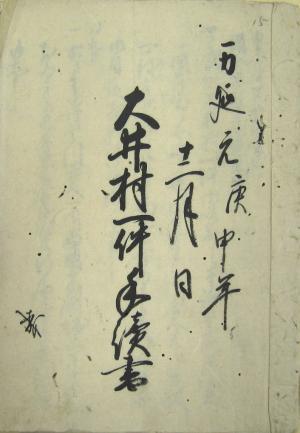 15
万延元庚申年
十二月日
大井村一件手続書